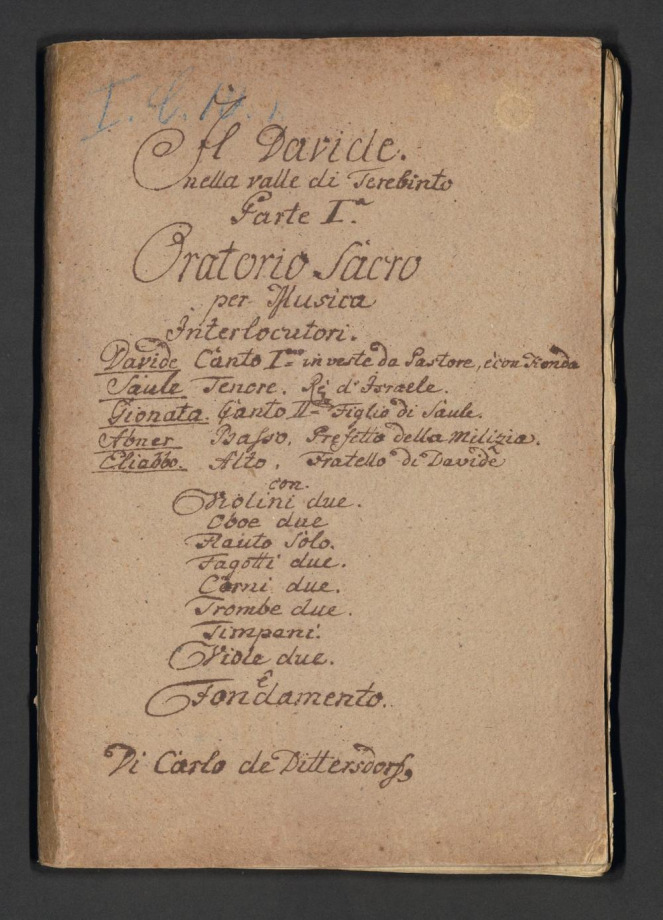 Il Davide.
nella valle di Terebinto
Parte I.ª
Oratorio Sacro
per Musica
Interlocutori.
Davide Canto I.mo in veste da Pastore, è con Fionda
Saule Tenore. Rè d'Israele.
Gionata. Canto II.do Figlio di Saule.
Abner Basso, Prefetto della Milizia.
Eliabbo. Alto, Fratello di Davide
con.
Violini due.
Oboe due
Flauto Solo.
Fagotti due.
Corni due.
Trombe due.
Timpani.
Viole due.
è
Fondamento.
Di Carlo de Dittersdorf,